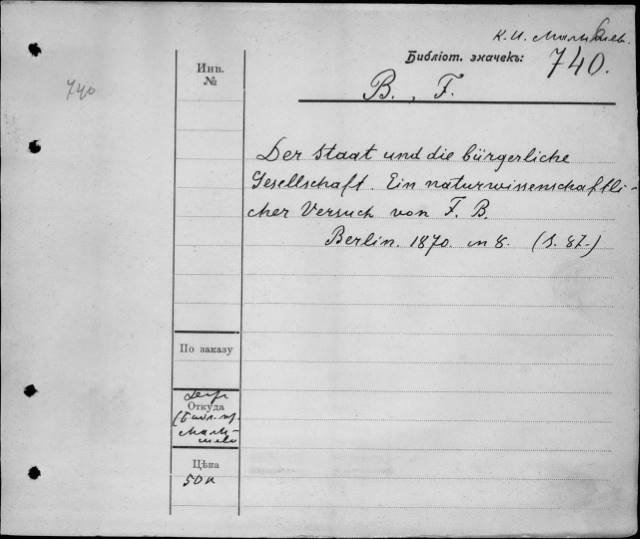 К. И. Малышев.
Библіот. значекъ: 740.
740
B., F.
Инв.
№
Der Staat und die bürgerliche
Gesellschaft. Ein naturwissenschaftli-
cher Versuch von F. B.
Berlin. 1870. in 8. (S. 87.)
По заказу
Откуда
Цѣна
50 к